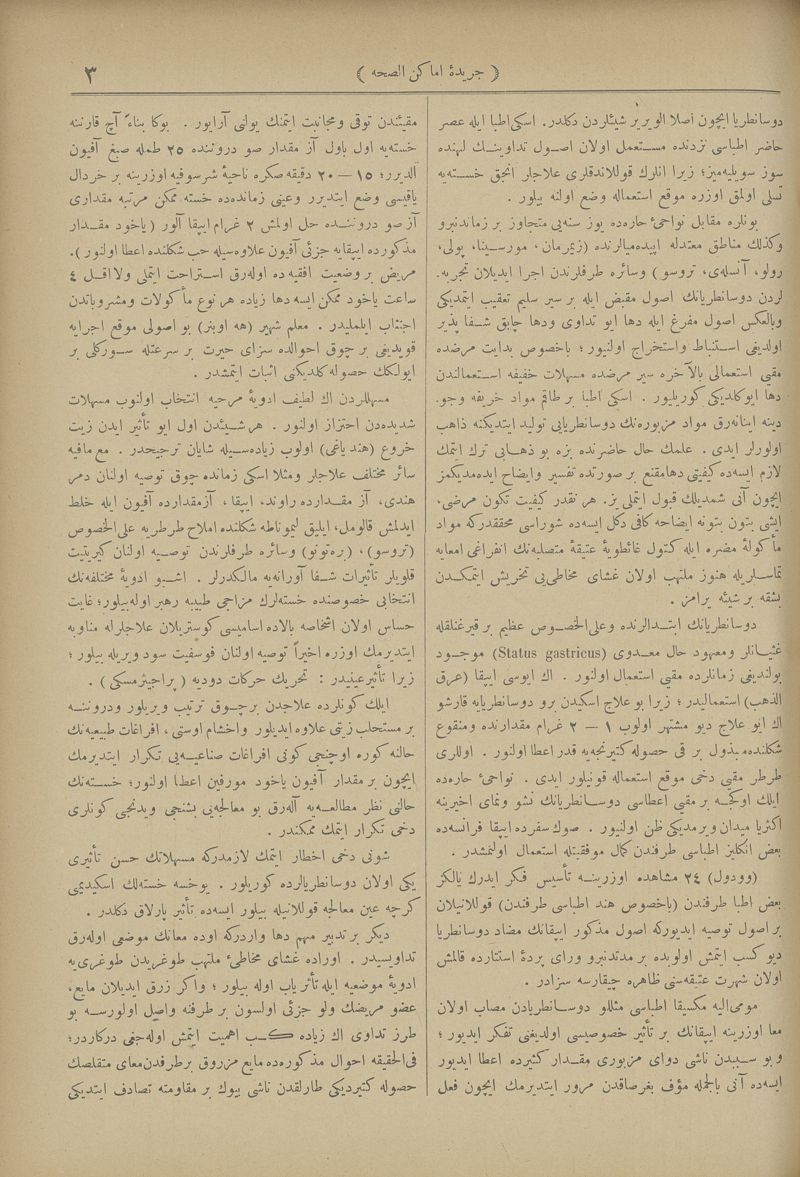 ﴿ جريدۀ اماكن الصحه ﴾
٣
دوسانطريا ايچون اصلا الويرير شيئلردن دكلدر. اسكى اطبا ايله عصر
حاضر اطباسى نزدنده مستعمل اولان اصول تداوينك لهنده
سوز سويليه‌ميز؛ زيرا انلرك قوللاندقلرى علاجلر انجق خسته‌يه
تسلى اولمق اوزره موقع استعماله وضع اولنه بيلور .
بونلره مقابل نواحىٔ حاره‌ده يوز سنه‌يى متجاوز بر زماندنبرو
وكذلك مناطق معتدله اپيده‌ميالرنده (زيمرمان، مورسينا، پولى،
رولو، آنسله‌ى، تروسو) وسائره طرفلرندن اجرا ايديلان تجربه.
لردن دوسانطريانك اصول مقبض ايله بر سير سليم تعقيب ايتمديكى
وبالعكس اصول مفرغ ايله دها ايو تداوى ودها چابق شفا پذير
اولديغى استنباط واستخراج اولنيور ؛ باخصوص بدايت مرضده
مقيى استعمالى بالآخره سير مرضده مسهلات خفيفه استعمالندن
دها ايو كلديكى كوريليور . اسكى اطبا بر طاقم مواد خريفه وجو.
دينه اينانه‌رق مواد مزبوره‌نك دوسانطريايى توليد ايتديكنه ذاهب
اولورلر ايدى . علمك حال حاضرنده بزه بو ذهابى ترك ايتمك
لازم ايسه‌ده كيفيتى دها مقنع بر صورتده تفسير وايضاح ايده‌مديكمز
ايچون آنى شمديلك قبول ايتملى يز. هر نقدر كيفيت تكون مرضى،
ايشى بتون بتونه ايضاحه كافى دكل ايسه‌ده شوراسى محققدركه مواد
مأكولۀ مضره ايله كتول غائطويۀ عتيقۀ متصلبه‌نك انفراغى امعايه
تماسلريله هنوز ملتهب اولان غشاى مخاطى‌يى تخريش ايتمكدن
بشقه بر شيئه يرامز .
دوسانطريانك ابتدالرنده وعلى الخصوص عظيم بر قيرغنلقله
غثيانلر ومعهود حال معدوى (Status gastricus) موجود
بولنديغى زمانلرده مقيى استعمال اولنور . اك ايوسى ايپقا (عرق
الذهب) استعماليدر ؛ زيرا بو علاج اسكيدن برو دوسانطريايه قارشو
اك ايو علاج ديو مشتهر اولوب ١ — ٢ غرام مقدارنده ومنقوع
شكلنده مبذول بر قى حصوله كتيرنجه‌يه قدر اعطا اولنور . اوللرى
طرطر مقيى دخى موقع استعماله قونيلور ايدى . نواحىٔ حاره‌ده
ايلك اوكجه بر مقيى اعطاسى دوسانطريانك نشو ونماى اخيرينه
اكثريا ميدان ويرمديكى ظن اولنيور . صوك سفرده ايپقا فرانسه‌ده
بعض انكليز اطباسى طرفندن كمال موفقيتله استعمال اولنمشدر .
(وودول) ٢٤ مشاهده اوزرينه تأسيس فكر ايدرك يالكز
بعض اطبا طرفندن (باخصوص هند اطباسى طرفندن) قوللانيلان
بر اصول توصيه ايديوركه اصول مذكور ايپقانك مضاد دوسانطريا
ديو كسب ايتمش اولوبده بر مدتدنبرو وراى پردۀ استتارده قالمش
اولان شهرت عتيقه‌سنى ظاهره چيقارسه سزادر .
مومى‌اليه مكسيقا اطباسى مثللو دوسانطريادن مصاب اولان
معا اوزرينه ايپقانك بر تأثير خصوصيسى اولديغنى تفكر ايديور ؛
وبو سببدن ناشى دواى مزبورى مقدار كثيرده اعطا ايديور
ايسه‌ده آنى بالجمله مؤف بغرصاقدن مرور ايتديرمك ايچون فعل
مقيئدن توقى ومجانبت ايتمنك يولنى آرايور . بوكا بناءً آچ قارننه
خسته‌يه اول باول آز مقدار صو دروننده ٢٥ طمله صبغ آفيون
الديرر؛ ١٥ — ٢٠ دقيقه صكره ناحيۀ شرسوفيه اوزرينه بر خردال
ياقيسى وضع ايتديرر وعينى زمانده‌ده خسته. ممكن مرتبه مقدارى
آز صو دروننده حل اولمش ٢ غرام ايپقا آلور (ياخود مقدار
مذكورده ايپقايه جزئى آفيون علاوه‌سيله حب شكلنده اعطا اولنور).
مريض بر وضعيت افقيه ده اوله‌رق استراحت ايتملى ولااقل ٤
ساعت ياخود ممكن ايسه دها زياده هر نوع مأكولات ومشروباتدن
اجتناب ايلمليدر . معلم شهير (هه اوبنر) بو اصولى موقع اجرايه
قويديغى بر چوق احوالده سزاى حيرت بر سرعتله سوركلى بر
ايولكك حصوله كلديكنى اثبات ايتمشدر .
مسهللردن اك لطيف ادويۀ مرخيه انتخاب اولنوب مسهلات
شديده‌دن احتراز اولنور . هر شيئدن اول ايو تأثير ايدن زيت
خروع (هند ياغى) اولوب زياده‌سيله شايان ترجيحدر . مع مافيه
سائر مختلف علاجلر ومثلا اسكى زمانده چوق توصيه اولنان دمر
هندى، آز مقدارده راوند، ايپقا ، آز مقدارده آفيون ايله خلط
ايدلمش قالومل، ايليق ليموناطه شكلنده املاح طرطريه على الخصوص
(تروسو) ، (بره‌تونو) وسائره طرفلرندن توصيه اولنان كبريتيت
قلويلر تأثيرات شفا آورانه‌يه مالكدرلر . اشبو ادويۀ مختلفه‌نك
انتخابى خصوصنده خسته‌لرك مزاجى طبيبه رهبر اوله بيلور؛ غايت
حساس اولان اشخاصه بالاده اساميسى كوستريلان علاجلراه مناوبه
ايتديرمك اوزره اخيراً توصيه اولنان فوسفيت سود ويريله بيلور ؛
زيرا تأثير عينيدر : تحريك حركات دوديه (پراجيژمسكى) .
ايلك كونلرده علاجدن بر چوق ترتيب ويريلور ودروننه
بر مستحلب زيتى علاوه ايديلور واخشام اوستى ، افراغات طبيعيه‌نك
حالنه كوره اوچنجى كونى افراغات صناعيه‌يى تكرار ايتديرمك
ايچون بر مقدار آفيون ياخود مورفين اعطا اولنور؛ خسته‌نك
حالنى نظر مطالعه‌يه آله‌رق بو معالجه‌يى بشنجى ويدنجى كونلرى
دخى تكرار ايتمك ممكندر .
شونى دخى اخطار ايتمك لازمدركه مسهلاتك حسن تأثيرى
يكى اولان دوسانطريالرده كوريلور . يوخسه خسته‌لك اسكيديمى
كرچه عين معالجه قوللانيله بيلور ايسه‌ده تأثير پارلاق دكلدر .
ديكر بر تدبير مهم دها واردركه اوده معانك موضعى اوله‌رق
تداويسيدر . اوراده غشاى مخاطىٔ ملتهب طوغريدن طوغرى‌يه
ادويۀ موضعيه ايله تأثرياب اوله بيلور ؛ واكر زرق ايديلان مايع،
عضو مريضك ولو جزئى اولسون بر طرفنه واصل اولورسه بو
طرز تداوى اك زياده كسب اهميت ايتمش اوله‌جغى دركاردر؛
فى‌الحقيقه احوال مذكوره‌ده مايع مزروق بر طرفدن معاى متقلصك
حصوله كتيرديكى طارلقدن ناشى بيوك بر مقاومته تصادف ايتديكى